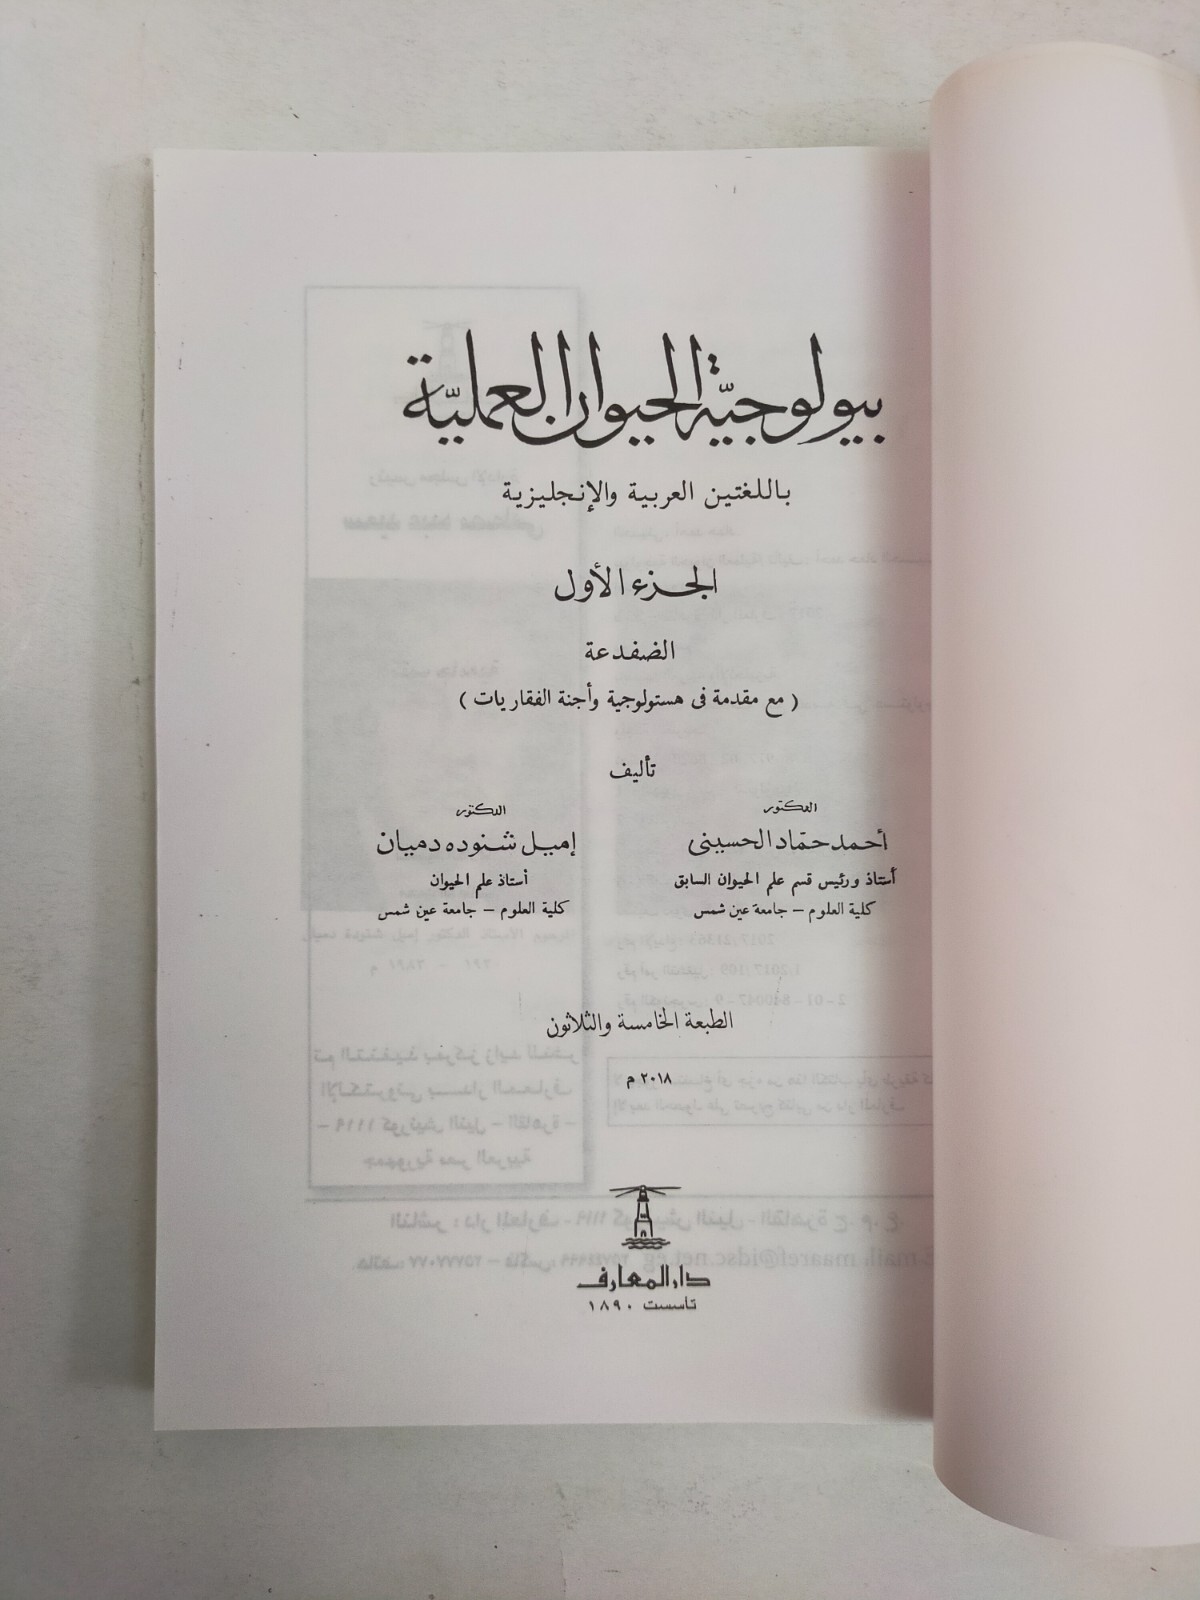 بيولوجيّة الحيوان العمليّة
باللغتين العربية والإنجليزية
الجزء الأول
الضفدعة
( مع مقدمة فى هستولوجية وأجنة الفقاريات )
تأليف
الدكتور
أحمد حمّاد الحسينى
أستاذ ورئيس قسم علم الحيوان السابق
كلية العلوم – جامعة عين شمس
الدكتور
إميل شنوده دميان
أستاذ علم الحيوان
كلية العلوم – جامعة عين شمس
الطبعة الخامسة والثلاثون
٢٠١٨ م
دار المعارف
تأسست ١٨٩٠